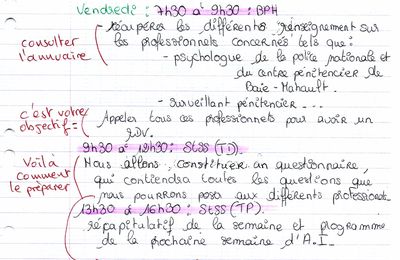 Vendredi : 7h30 à 9h30 : BPH
- récupérer les différents renseignement sur
les professionnels concernés tels que :
consulter
l'annuaire
- psychologue de la police nationale et
du centre pénitencier de
Baie-Mahault.
- surveillant pénitencier ...
c'est votre
objectif =
- Appeler tous ces professionnels pour avoir un
RDV.
9h30 à 12h30 : StSS (TD).
Voilà
comment
le préparer
Nous allons constituer un questionnaire,
qui contiendra toutes les questions que
nous pourrons posa aux différents professionnels
13h30 à 16h30 : StSS (TP).
récapitulatif de la semaine et programme
de la prochaine semaine d'A.I.